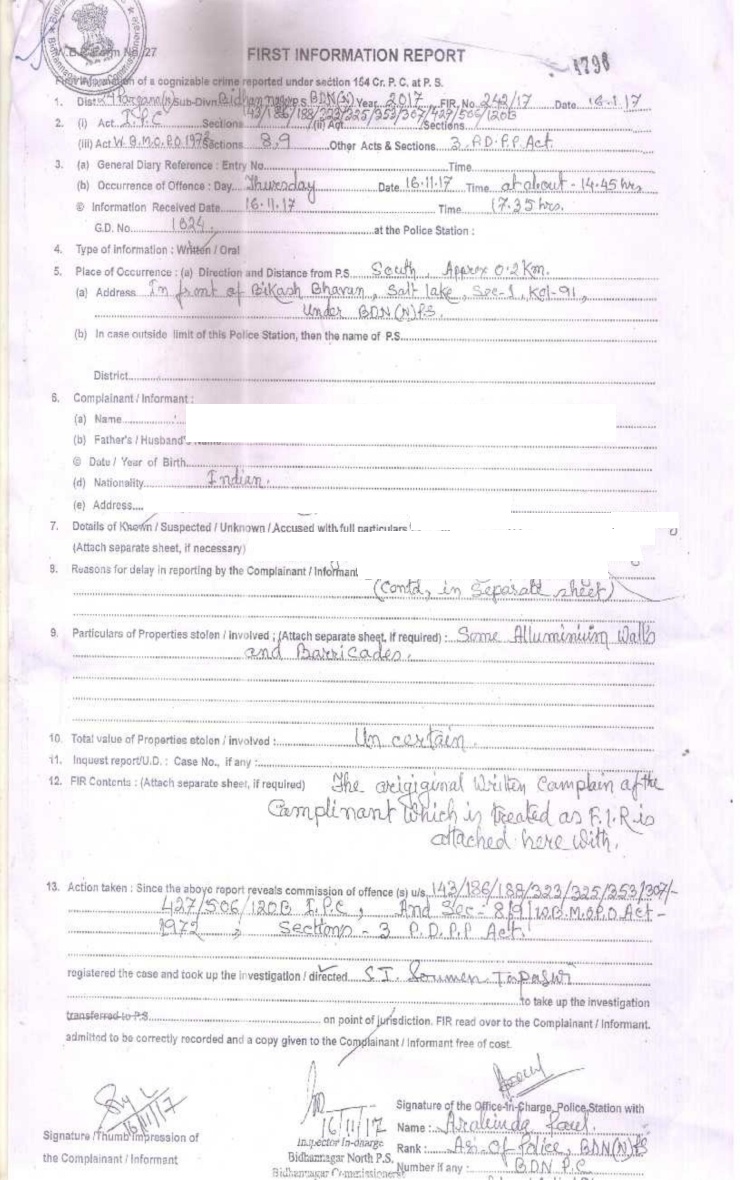 W.B.P. Form No. 27
FIRST INFORMATION REPORT
1798
First Information of a cognizable crime reported under section 154 Cr. P. C. at P. S.
1. Dist. 24 Pargana(N) Sub-Divn. Bidhan nagar P.S. BDN(N) Year 2017 FIR. No. 242/17 Date 16-1.17
2. (i) Act. I.P.C Sections 143/186/188/323/325/353/307/427/506/120B (ii) Act Sections
(iii) Act W.B.M.O.P.O.1972 Sections 8,9 Other Acts & Sections 3 P.D.P.P Act.
3. (a) General Diary Reference : Entry No. Time
(b) Occurrence of Offence : Day Thursday Date 16.11.17 Time at about - 14.45 hrs
© Information Received Date 16.11.17 Time 17.35 hrs.
G.D. No. 1024 at the Police Station :
4. Type of information : Written / Oral
5. Place of Occurrence : (a) Direction and Distance from P.S. South, Approx 0.2 Km.
(a) Address In front of Bikash Bhavan, Salt lake, Sec-1, Kol-91,
Under BDN(N)P.S.
(b) In case outside limit of this Police Station, then the name of P.S.
District
6. Complainant / Informant :
(a) Name
(b) Father's / Husband's
© Date / Year of Birth
(d) Nationality Indian.
(e) Address
7. Details of Known / Suspected / Unknown / Accused with full particulars
(Attach separate sheet, if necessary)
8. Reasons for delay in reporting by the Complainant / Informant
(Contd, in Separate sheet)
9. Particulars of Properties stolen / involved ; (Attach separate sheet, if required) : Some Alluminium Walls
and Barricades.
10. Total value of Properties stolen / involved : Un certain.
11. Inquest report/U.D. : Case No., if any :
12. FIR Contents : (Attach separate sheet, if required) The origiginal Written Complain of the
Complinant which is treated as F.I.R is
attached here with.
13. Action taken : Since the above report reveals commission of offence (s) u/s 143/186/188/323/325/353/307/-
427/506/120B I.P.C, And Sec- 8,9 W.B.M.O.P.O Act-
1972, Sections - 3 P.D.P.P Act.
registered the case and took up the investigation / directed S.I. Soumen Tapaswi
to take up the investigation
transferred to P.S. on point of jurisdiction. FIR read over to the Complainant / Informant.
admitted to be correctly recorded and a copy given to the Complainant / Informant free of cost.
16/11/17
Signature /Thumb Impression of
the Complainant / Informant
16/11/17
Inspector In-charge
Bidhannagar North P.S.
Bidhannagar Commissionerate
Signature of the Office-In-Charge, Police Station with
Name : Arabinda Paul.
Rank : Asi. of Police, BDN(N)PS
Number if any : BDN P.C